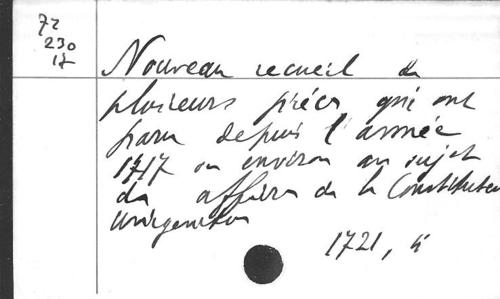 72
230
17
Nouveau recueil de
plusieurs pièces qui ont
paru depuis l'année
1717 ou environ au sujet
des affaires de la Constitution
Unigenitus
1721, 4